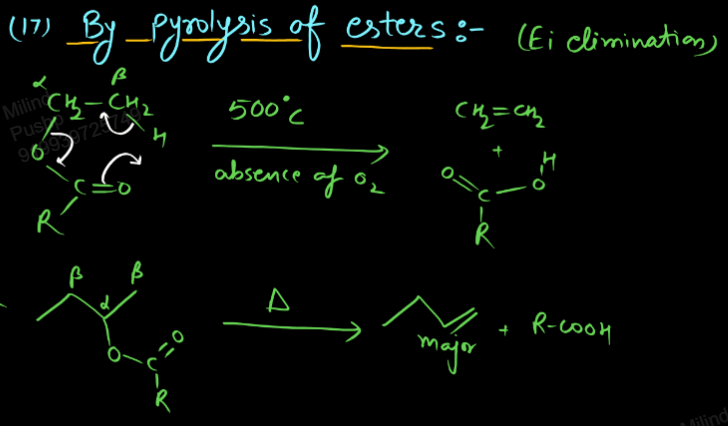 (17) By pyrolysis of esters :- (Ei elimination)
α β
CH₂-CH₂
H
O
C=O
R
500°C
absence of O₂
CH₂=CH₂
+
O C O H
R
β β
α
O C O
R
Δ
major + R-COOH
Milind